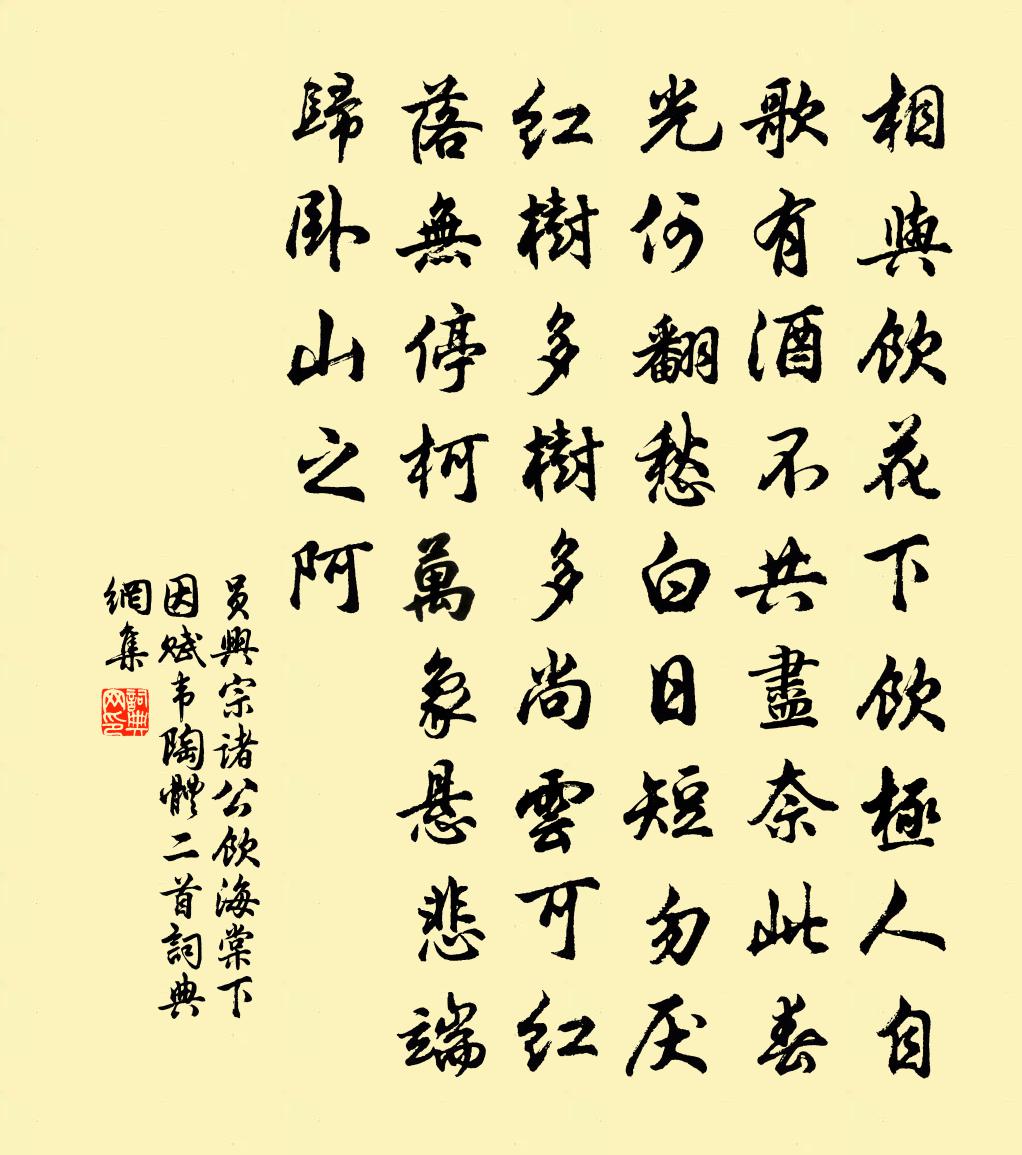 相與飲花下飲極人自
歌有酒不共盡奈此春
光何翻愁白日短勿厌
紅樹多樹多尚雲可紅
落無停柯萬象悬悲端
歸卧山之阿
员興宗诸公飲海棠下
因赋韦陶體二首詞典
網集
詞典
网印